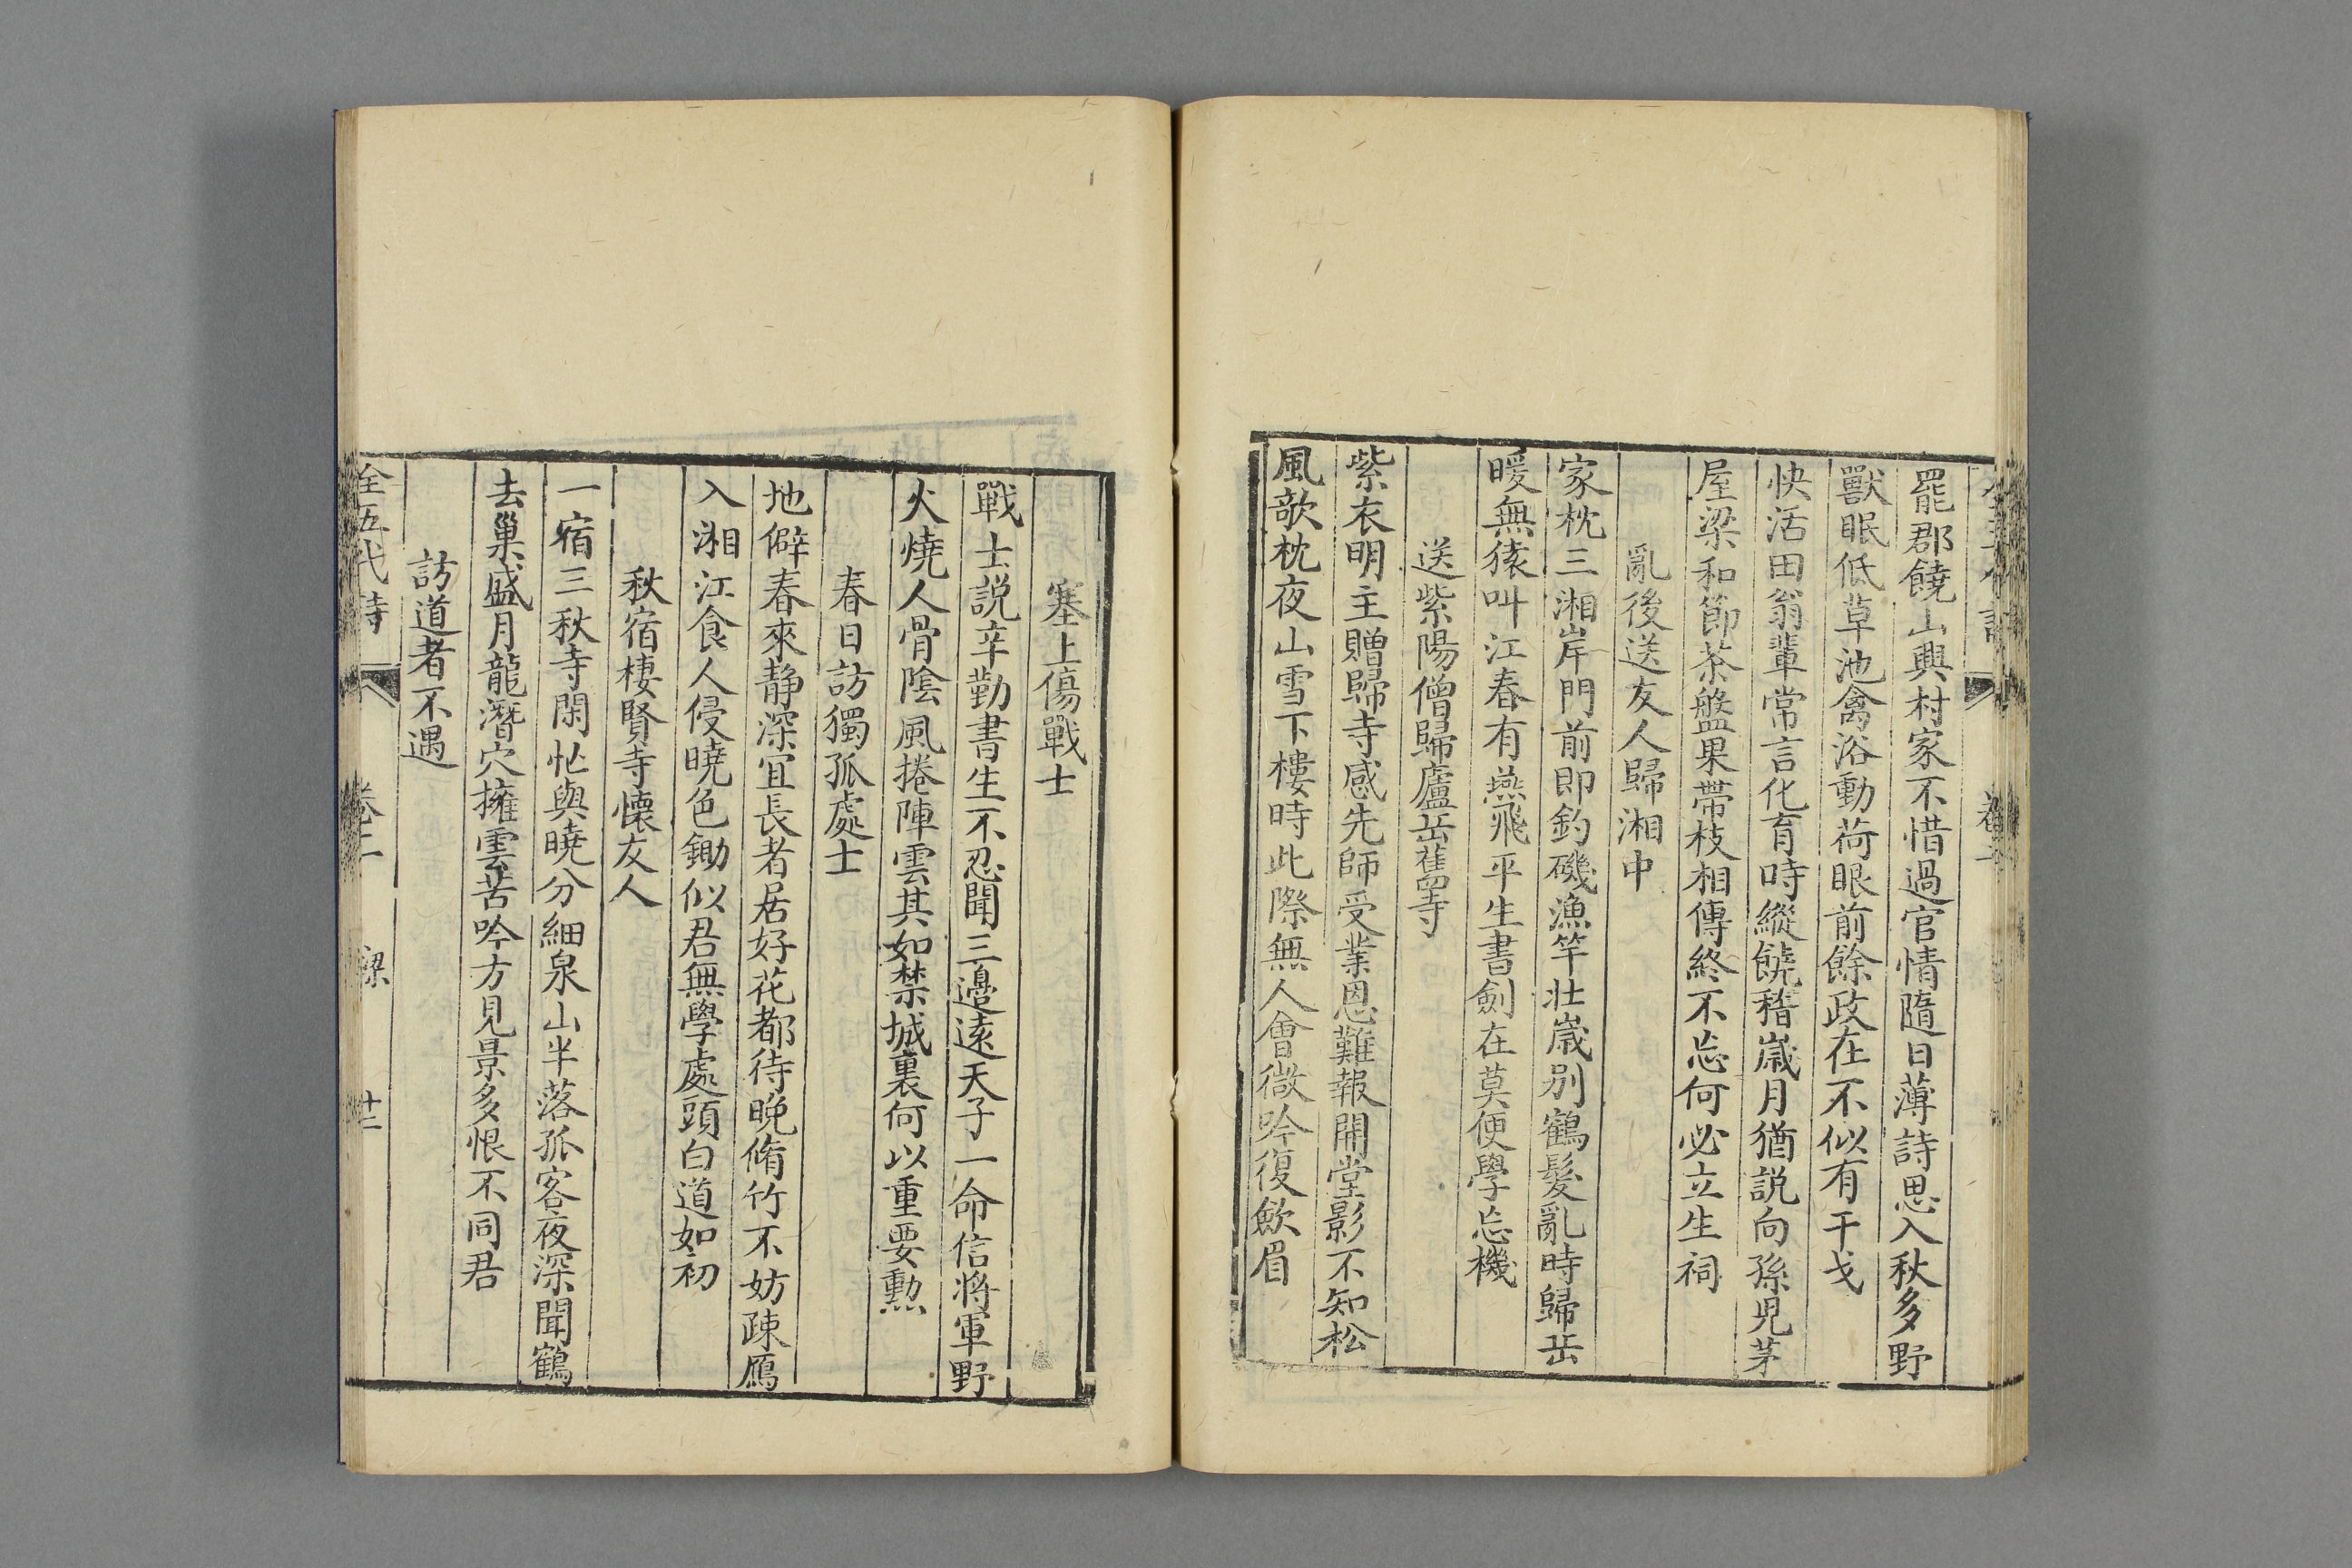 罷郡饒山興村家不惜過官情隨日薄詩思入秋多野
獸眠低草池禽浴動荷眼前餘政在不似有干戈
快活田翁輩常言化育時縱饒稽歲月猶説向孫兒茅
屋梁和節茶盤果帶枝相傳終不忘何必立生祠
亂後送友人歸湘中
家枕三湘岸門前即釣磯漁竿壯歲别鶴髮亂時歸岳
暖無猿叫江春有燕飛平生書劍在莫便學忘機
送紫陽僧歸廬岳舊寺
紫衣明主贈歸寺感先師受業恩難報開堂影不知松
風欹枕夜山雪下樓時此際無人會微吟復斂眉
塞上傷戰士
戰士説辛勤書生不忍聞三邊遠天子一命信將軍野
火燒人骨陰風捲陣雲其如禁城裏何以重要勲
春日訪獨孤處士
地僻春來静深宜長者居好花都待晚脩竹不妨疎鴈
入湘江食人侵曉色鋤似君無學處頭白道如初
秋宿棲賢寺懷友人
一宿三秋寺閑忙與曉分細泉山半落孤客夜深聞鶴
去巢盛月龍潛穴擁雲苦吟方見景多恨不同君
訪道者不遇
全五代詩 卷十一 梁 十二